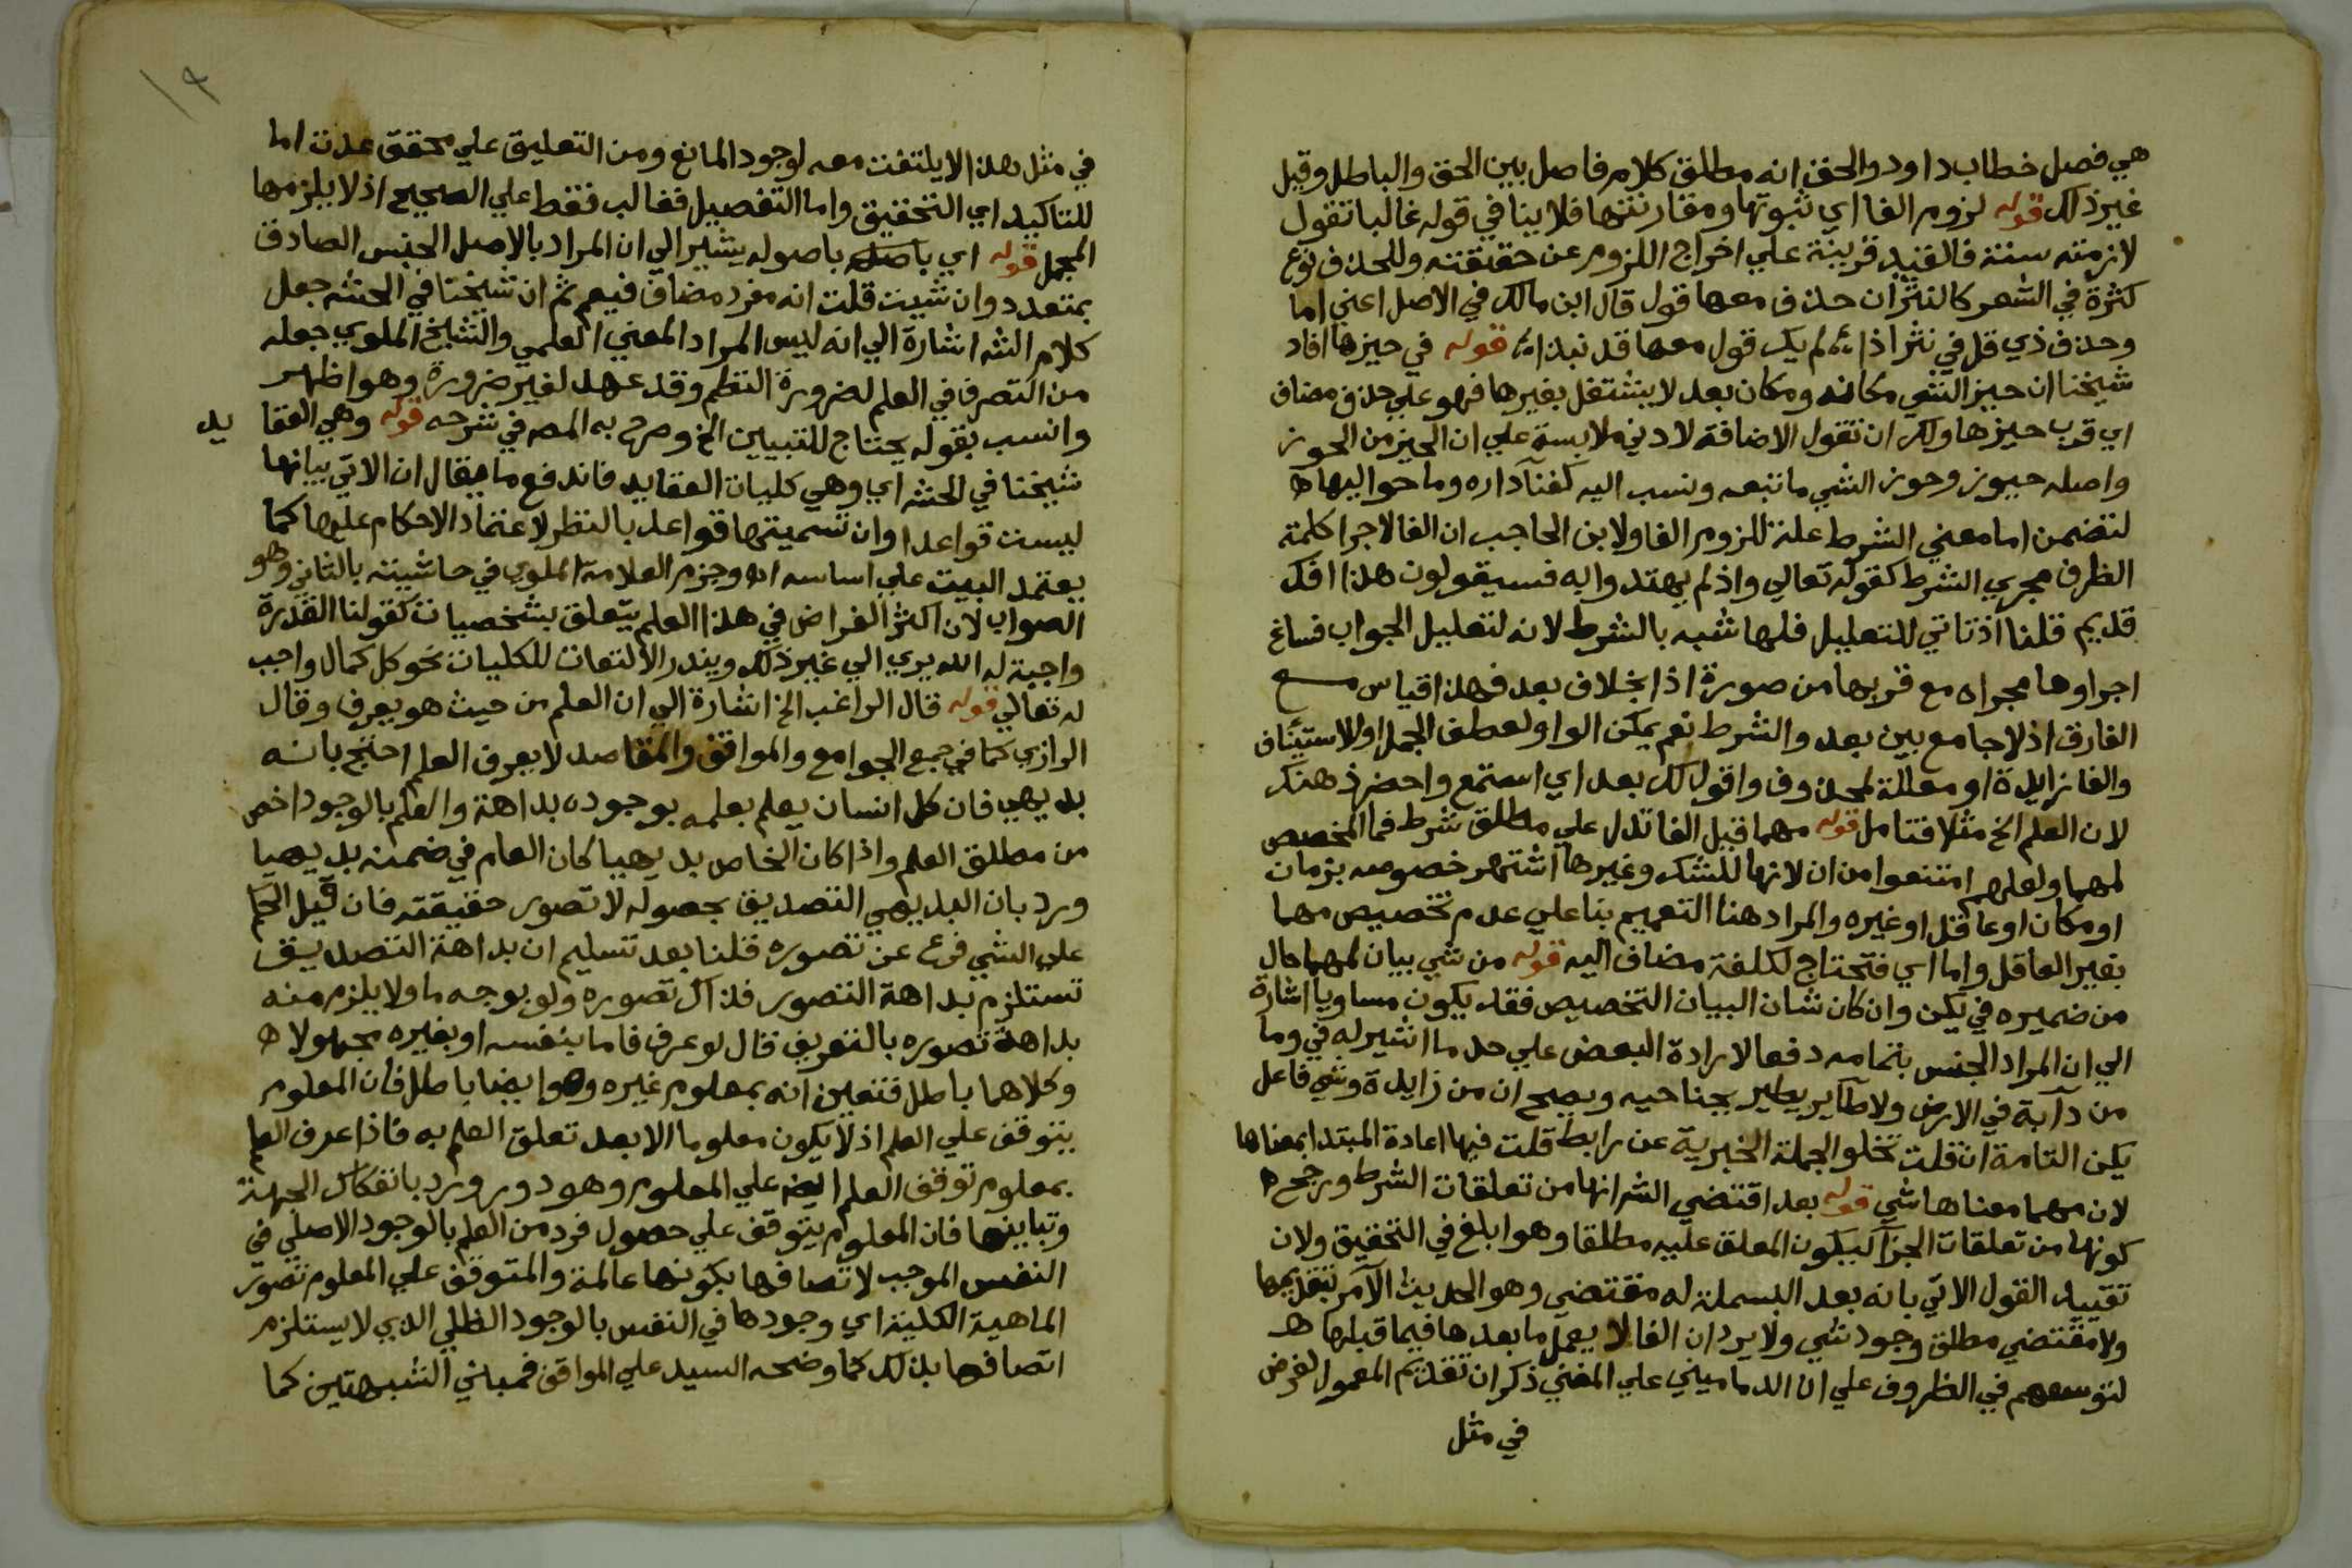 هي فصل خطاب داود والحق انه مطلق كلام فاصل بين الحق والباطل وقيل
غير ذلك قوله لزوم الفا اي ثبوتها ومقارنتها فلا ينافي قوله غالبا تقول
لازمته سنة فالقيد قرينة علي اخراج اللزوم عن حقيقته وللحذف نوع
كثرة في الشعر كالنثر ان حذف معها قول قال ابن مالك في الاصل اعني اما
وحذف ذي قل في نثر اذا لم يك قول معها قد نبذا قوله في حيزها افاد
شيخنا ان حيز الشي مكانه ومكان بعد لا يشتغل بغيرها فهو علي حذف مضاف
اي قرب حيزها ولك ان تقول الاضافة لادني ملابسة علي ان الحيز من الحوز
واصله حيوز وحوز الشي ما تبعه ونسب اليه كفنا داره وما حواليها
لتضمن اما معني الشرط علة للزوم الفا ولابن الحاجب ان الفا لاجرا كلمة
الظرف مجري الشرط كقوله تعالي واذ لم يهتدوا به فسيقولون هذا افك
قديم قلنا اذ تاتي للتعليل فلها شبه بالشرط لانه لتعليل الجواب فساغ
اجراوها مجراه مع قربها من صورة اذا بخلاف بعد فهذا قياس مع
الفارق اذ لا جامع بين بعد والشرط نعم يمكن الواو لعطف الجمل او للاستيناف
والفا زايدة او معللة لمحذوف واقول لك بعد اي استمع واحضر ذهنك
لان العلم الخ مثلا فتامل قوله مهما قيل الفا تدل علي مطلق شرط فما المخصص
لمهما ولعلهم امتنعوا من ان لانها للشك وغيرها اشتهر خصوصه بزمان
او مكان او عاقل او غيره والمراد هنا التعميم بنا علي عدم تخصيص مهما
بغير العاقل واما اي فتحتاج لكلفة مضاف اليه قوله من شي بيان لمهما حال
من ضميره في يكن وان كان شان البيان التخصيص فقد يكون مساويا اشارة
الي ان المراد الجنس بتمامه دفعا لارادة البعض علي حد ما اشير له في وما
من دابة في الارض ولا طاير يطير بجناحيه ويصح ان من زايدة وشي فاعل
يكن التامة ان قلت تخلو الجملة الخبرية عن رابط قلت فيها اعادة المبتدا بمعناها
لان مهما معناها شي قوله بعد اقتضي الش انها من تعلقات الشرط ورجح
كونها من تعلقات الجزا ليكون المعلق عليه مطلقا وهو ابلغ في التحقيق ولان
تقييد القول الاتي بانه بعد البسملة له مقتضي وهو الحديث الآمر بتقديمها
ولا مقتضي مطلق وجود شي ولا يرد ان الفا لا يعمل ما بعدها فيما قبلها
لتوسعهم في الظروف علي ان الدماميني علي المغني ذكر ان تقديم المعمول لغرض
في مثل
في مثل هذا لا يلتفت معه لوجود المانع ومن التعليق علي محقق عدت اما
للتاكيد اي التحقيق واما التفصيل فغالب فقط علي الصحيح اذ لا يلزمها
المجمل قوله اي باصوله يشير الي ان المراد بالاصل الجنس الصادق
بمتعدد وان شيت قلت انه مفرد مضاف فيعم ثم ان شيخنا في الحش جعل
كلام الش اشارة الي انه ليس المراد المعني العلمي والشيخ الملوي جعله
من التصرف في العلم لضرورة النظم وقد عهد لغير ضرورة وهو اظهر
وانسب بقوله يحتاج للتبيين الخ وصرح به المص في شرحه قوله وهي العقا
يد
شيخنا في الحش اي وهي كليات العقايد فاندفع ما يقال ان الاتي بيانها
ليست قواعدا وان تسميتها قواعد بالنظر لاعتماد الاحكام عليها كما
يعتمد البيت علي اساسه اه وجزم العلامة الملوي في حاشيته بالثاني وهو
الصواب لان اكثر الغراض في هذا العلم يتعلق بشخصيات كقولنا القدرة
واجبة له الله يري الي غير ذلك ويندر الالتفات للكليات نحو كل كمال واجب
له تعالي قوله قال الراغب الخ اشارة الي ان العلم من حيث هو يعرف وقال
الرازي كما في جمع الجوامع والمواقف والمقاصد لا يعرف العلم احتج بانه
بديهي فان كل انسان يعلم بعلمه بوجوده بداهة والعلم بالوجود اخص
من مطلق العلم واذا كان الخاص بديهيا كان العام في ضمنه بديهيا
ورد بان البديهي التصديق بحصوله لا تصور حقيقته فان قيل الحكم
علي الشي فرع عن تصوره قلنا بعد تسليم ان بداهة التصديق
تستلزم بداهة التصور فذاك تصوره ولو بوجه ما ولا يلزم منه
بداهة تصوره بالتعريف قال لو عرف فاما بنفسه او بغيره مجهولا
وكلاهما باطل فتعين انه بمعلوم غيره وهو ايضا باطل فان المعلوم
يتوقف علي العلم اذ لا يكون معلوما الا بعد تعلق العلم به فاذا عرف العلم
بمعلوم توقف العلم ايضا علي المعلوم وهو دور ورد بانفكاك الجهة
وتباينها فان المعلوم يتوقف علي حصول فرد من العلم بالوجود الاصلي في
النفس الموجب لاتصافها بكونها عالمة والمتوقف علي المعلوم تصور
الماهية الكلية اي وجودها في النفس بالوجود الظلي الذي لا يستلزم
اتصافها بذلك كما وضحه السيد علي المواقف فمبني الشبهتين كما